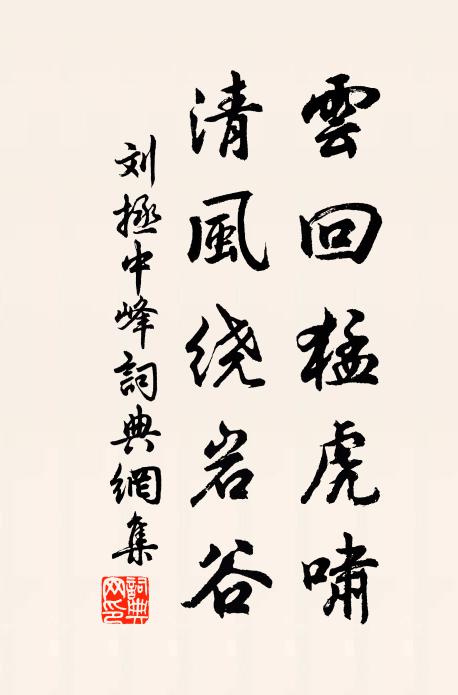 雲回猛虎嘯
清風绕岩谷
刘拯中峰詞典網集
詞典网印